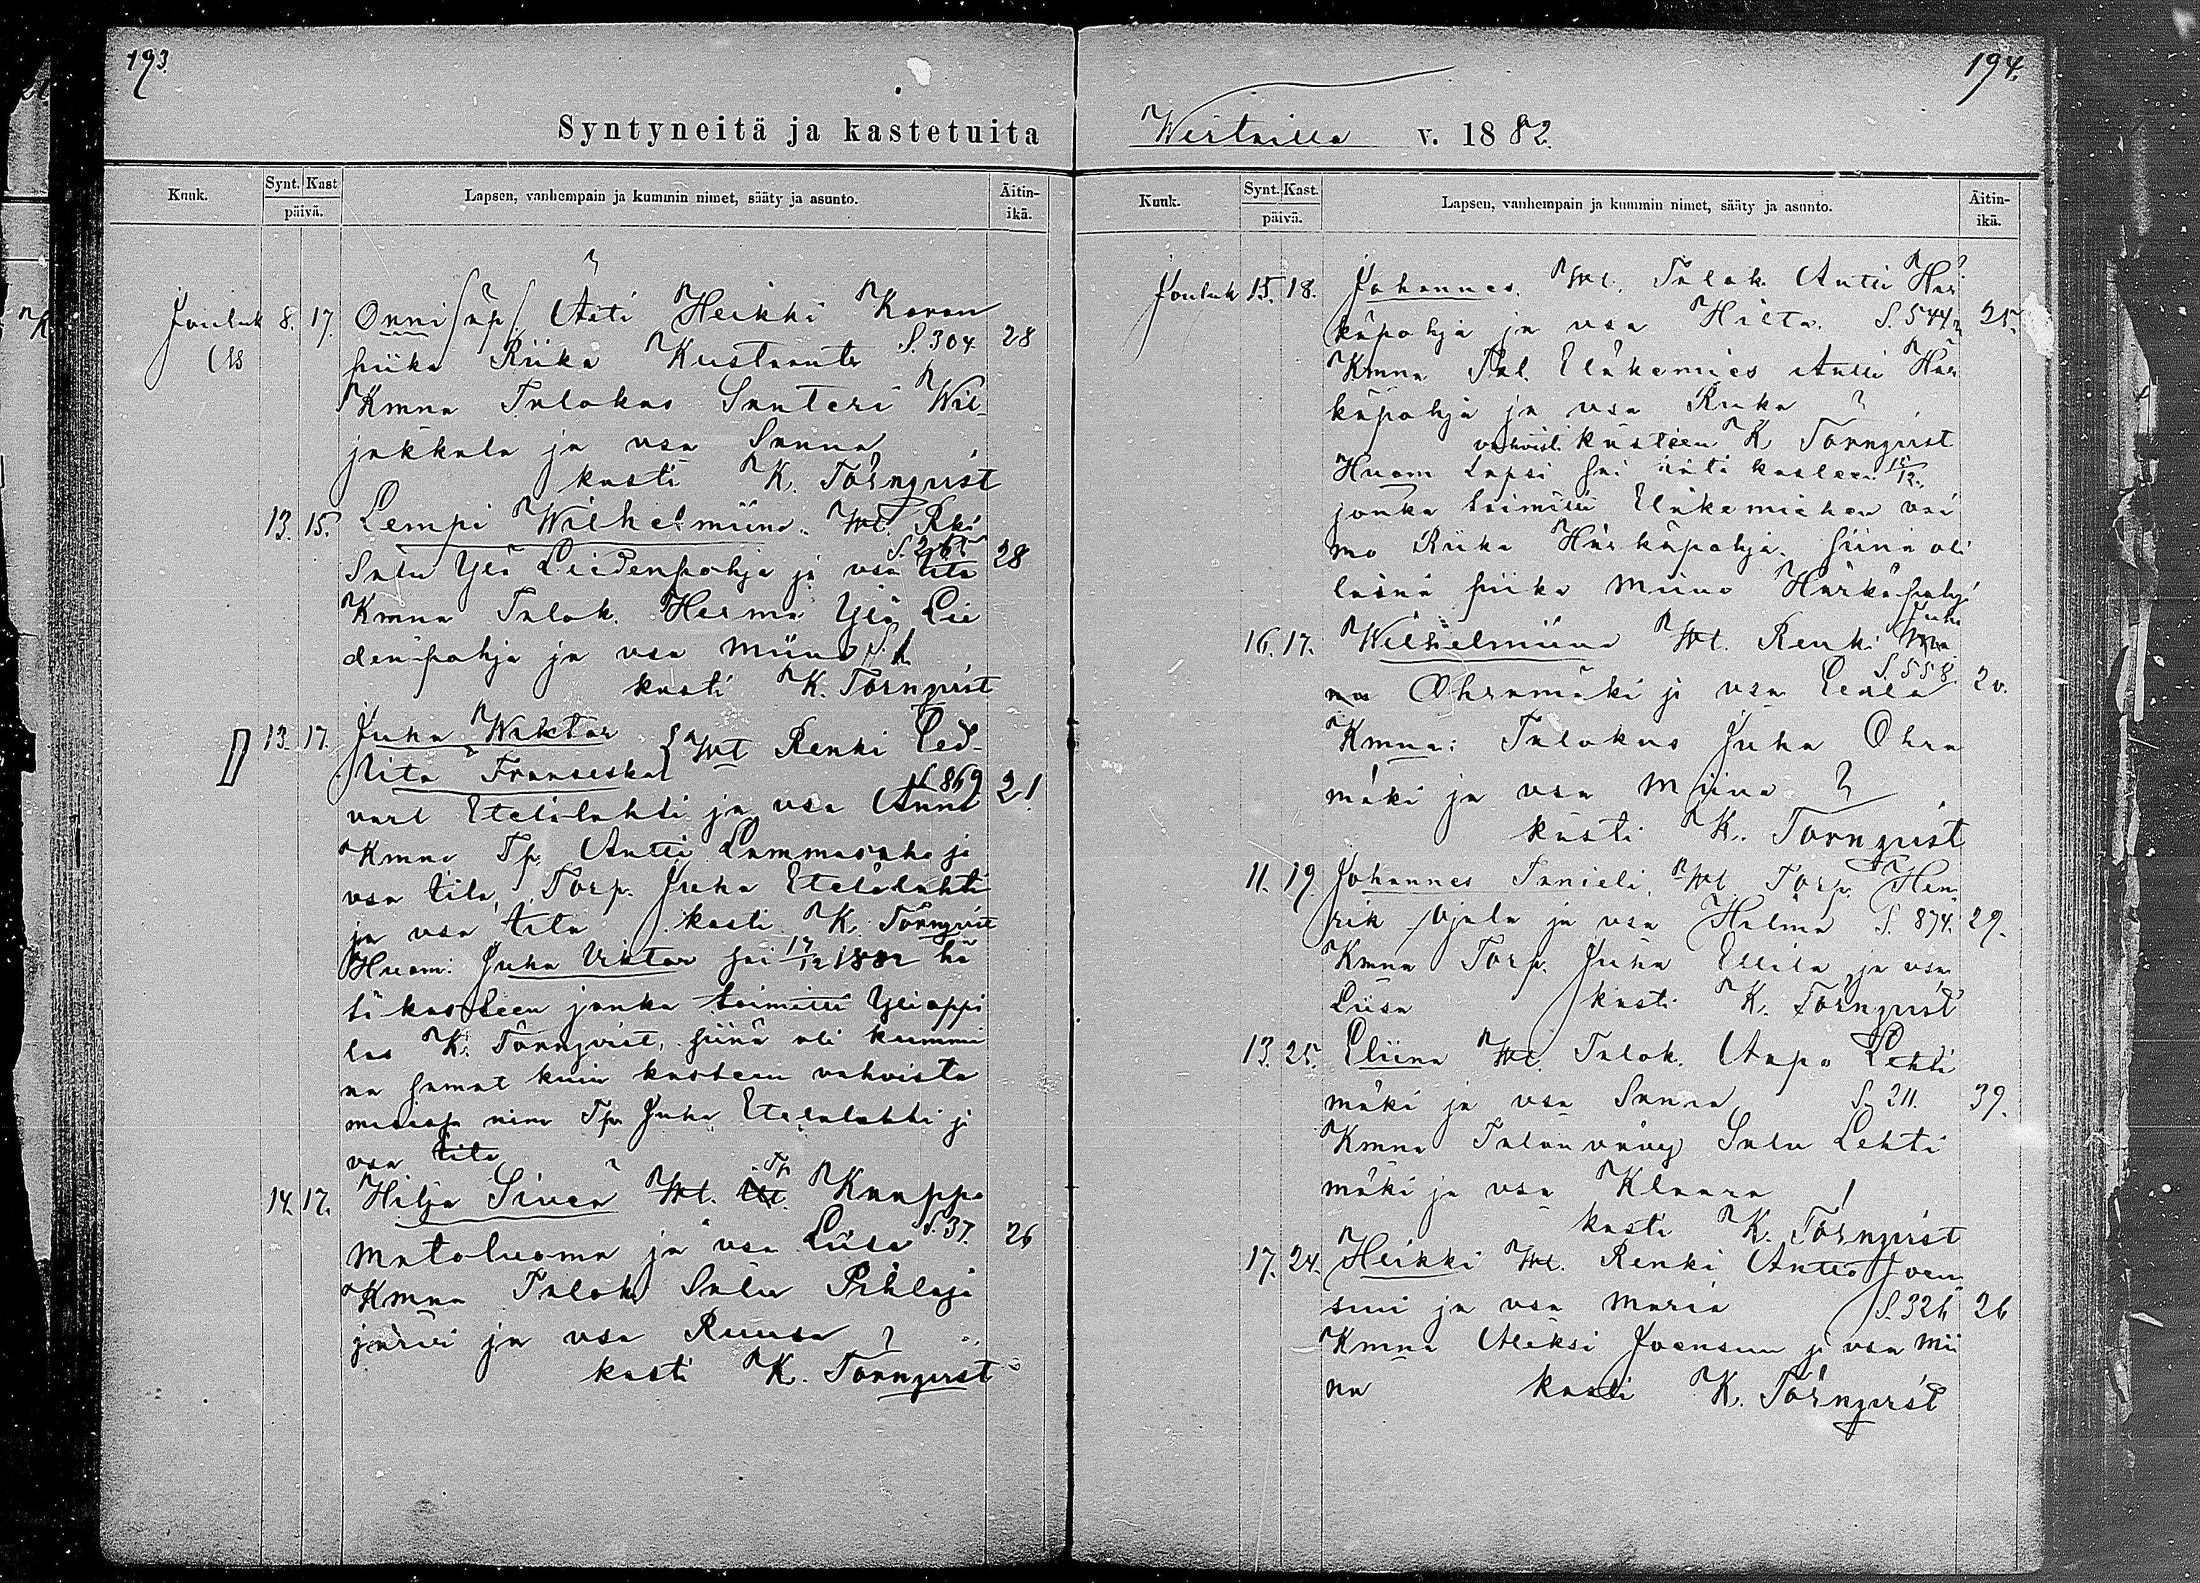 193.
Syntyneitä ja kastetuita
Kuuk. Synt. Kast päivä. Lapsen, vanhempain ja kummin nimet, sääty ja asunto. Äitin-ikä.
Jouluk 8. 17. Onni /äp/ Äiti Heikki Koron
piika Riika Kustaant. S. 304. 28
Kmna Talokas Santeri Wil-
jakkala ja vsa Sanna
kasti K. Törnqvist
13. 15. Lempi Wilhelmiina. Wt. Rki
Salu Ylä Liedenpohja ja vsa Iita 28
Kmna Talok. Herma Ylä Lie
denpohja ja vsa Miina
kasti K. Törnqvist
13. 17. Juha Wiktor
Iita Franseska } Wt Renki Eed-
vart Etelälahti ja vsa Anna S. 869 21.
Kmna Tp. Antti Lammasaho ja
vsa Iita, Torp. Juha Etelälahti
ja vsa Iita kasti K. Törnqvist
Huom: Juha Viktor sai 17/12 1882 hä
tä kasteen jonka toimitti Ylioppi
las K. Törnqvist, siinä oli kummi
na samat kuin kasteen vahvista
misessa nim Tp Juha Etelälahti ja
vsa Iita
14. 17. Hilja Siveä Wt. Tp Kaappo
Matoluoma ja vsa Liisa S. 37. 26
Kmna Talok Salu Pihlaja
järvi ja vsa Ruusa
kasti K. Törnqvist
194.
Wirtailla v. 1882.
Kuuk. Synt. Kast. päivä. Lapsen, vanhempain ja kummin nimet, sääty ja asunto. Äitin-ikä.
Jouluk 15. 18. Johannes. Wt. Talok Antti Här
käpohja ja vsa Hilta. S. 544. 25.
Kmna Tal. Eläkemies Antti Här
käpohja ja vsa Riika
vahvist. kasteen K Törnqvist
Huom Lapsi sai hätä kasteen
jonka toimitti Eläkemiehen vai
mo Riika Härkäpohja. siinä oli
läsnä piika Miina Härkäpohja
16. 17. Wilhelmiina Wt. Renki Juha
Ohramäki ja vsa Eeva S. 558. 20.
Kmna: Talokas Juha Ohra
mäki ja vsa Miina
kasti K. Törnqvist
11. 19. Johannes Taneli. Wt Torp. Hen
rik Ujala ja vsa Helma S. 874. 29.
Kmna Torp. Juha Ellila ja vsa
Liisa kasti K. Törnqvist
13. 25. Eliina Wt. Talok. Aapo Lehti
mäki ja vsa Sanna S. 211. 39.
Kmna Talon vävy Salu Lehti
mäki ja vsa Klaara
kasti K. Törnqvist
17. 24. Heikki Wt. Renki Antto Joen
suu ja vsa Maria S. 326 26
Kmna Aleksi Joensuu ja vsa Mii
na kasti K. Törnqvist